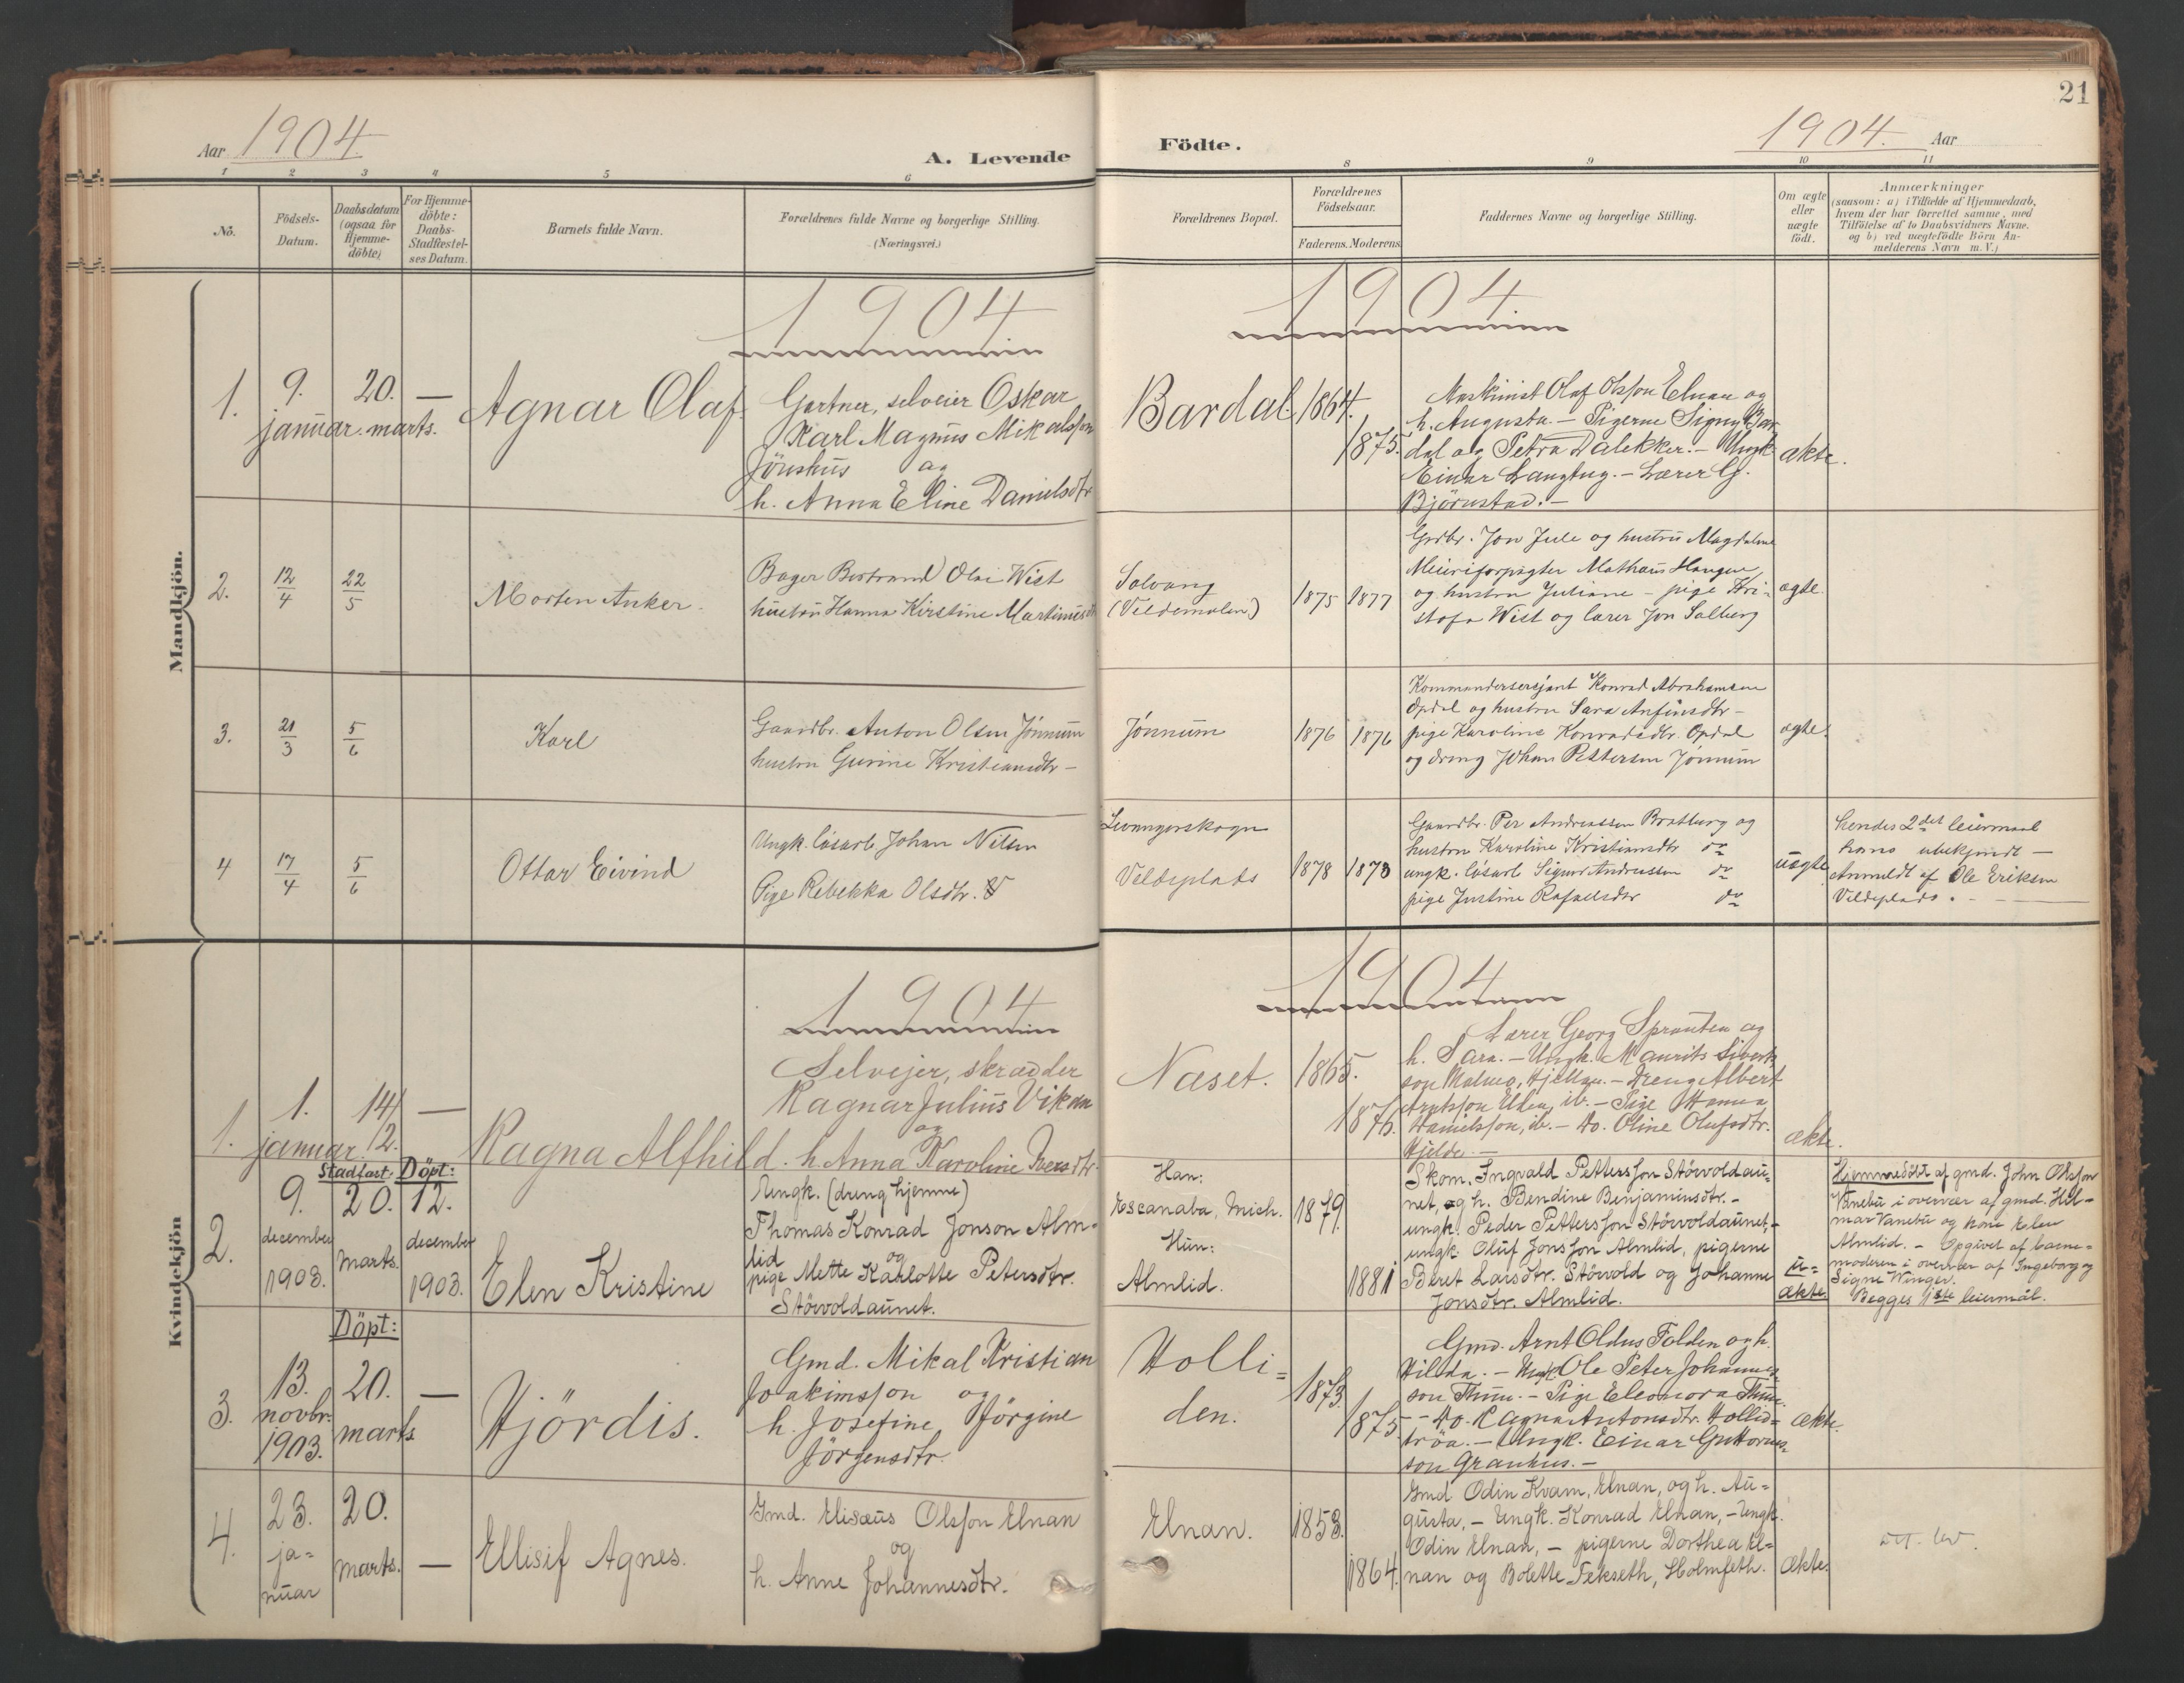 21
Aar 1904.
A. Levende Födte.
1904. Aar
1 2 3 4 5 6 8 9 10 11
No.
Födsels-
Datum.
Daabsdatum
(ogsaa for
Hjemme-
döbte)
For Hjemme-
döbte:
Daabs-
Stadfæstel-
ses Datum.
Barnets fulde Navn.
Forældrenes fulde Navne og borgerlige Stilling.
(Næringsvei.)
Forældrenes Bopæl.
Forældrenes
Födselsaar.
Faderens. Moderens
Faddernes Navne og borgerlige Stilling.
Om ægte
eller
uægte
födt.
Anmærkninger
(saasom: a) i Tilfælde af Hjemmedaab,
hvem der har forrettet samme, med
Tilföielse af to Daabsvidners Navne.
og b) ved uægtefödte Börn An-
melderens Navn m. V.)
Mandkjön.
1904
1904
1.
9.
januar.
20.
marts.
—
Agnar Olaf.
Gartner, selveier Oskar
Karl Magnus Mikalsson
Jönshus og
h. Anna Eline Danielsdtr
Bardal.
1864.
1875.
Maskinist Olaf Olsson Elnan og
h. Augusta. — Pigerne Signy Bar
dal og Petra Dalekker. — Ungk.
Einar Langtug. — Lærer G.
Björnstad. —
ækte.
2.
12/4
22/5
Morten Anker.
Bager Bertrand Olai Wist
hustru Hanna Kirstine Martinusdtr
Solvang
(Veldemolen)
1875
1877
Grdbr. Jon Jule og hustru Magdalene
Meieriforpagter Mathæus Haugan,
og hustru Juliane — pige Kri-
stofa Wist og lærer Jon Salberg
ægte.
3.
21/3
5/6
Karl
Gaardbr. Anton Olsen Jönnum
hustru Gurine Kristiansdtr —
Jönnum
1876
1876
Kommandersersjant Konrad Abrahamsen
Opdal og hustru Sara Anfinsdtr —
pige Karoline Konradsdtr Opdal
og dreng Johan Pettersen Jönnum
ægte.
4
17/4
5/6
Ottar Eivind
Ungk. lösarb. Johan Nilsen
Pige Rebekka Olsdtr.
Levangerskogn
Veldeplads
1878
1873
Gaardbr. Per Andreassen Bratberg og
hustru Karoline Kristiansdtr do
ungk. lösarb Sigurd Andreassen do
pige Justine Rafaelsdtr do
uægte
hendes 2det leiermaal
hans ubekjendt —
Anmeldt af Ole Eriksen
Veldeplads. —
Kvindekjön
1904
1904
1.
1.
januar.
14/
2.
—
Ragna Alfhild.
Selvejer, skrædder
Ragnar Julius Vikan
og
h. Anna Karoline Iversdtr.
Næset.
1865.
1876.
Lærer Georg Sprauten og
h. Sara. — Ungk. Maurits Sivert
son Malmo, Hjellan. — Dreng Albert
Arntsson Uden, ib. — Pige Hanna
Danielsson, ib. — Do. Oline Olufsdtr.
Hjelde. —
ækte.
2.
9.
december
1903.
Stadfæst.
20.
marts.
Döpt:
12.
december
1903.
Elen Kristine
Ungk. (dreng hjemme)
Thomas Konrad Jonson Alm-
lid og
pige Mette Karlotte Petersdtr.
Störvoldaunet.
Han:
Escanaba, Mich.
Hun:
Almlid.
1879.
1881
Skom. Ingvald Pettersson Störvoldau-
net, og h. Bendine Benjaminsdtr. —
ungk. Peder Pettersson Störvoldaunet, —
ungk. Oluf Jonsson Almlid, pigerne
Beret Larsdtr. Störvold og Johanne
Jonsdtr. Almlid.
u-
ækte.
Hjemmedöbt af gmd. John Olsson
Vanebu i overvær af gmd. Hil-
mar Vanebu og kone Elen
Almlid. — Opgivet af barne-
moderen i overvær af Ingeborg og
Signe Winger.
Begges 1ste leiermål.
3.
13.
novbr.
1903.
Döpt:
20.
marts.
—
Hjördis.
Gmd. Mikal Kristian
Joakimsson og
h. Josefine Jörgine
Jörgensdtr.
Holli-
den.
1873.
1875.
Gmd. Arnt Oldus Folden og h.
Hilda. — Ungk. Ole Peter Johannes-
son Thune. — Pige Eleonora Thune.
— Do. Ragna Antonsdtr. Hollid-
tröa. — Ungk. Einar Guttorms-
son Granhus. —
ækte.
4.
23.
ja-
nuar
20.
marts.
—
Ellisif Agnes.
Gmd. Elisæus Olsson Elnan
og
h. Anne Johannesdtr.
Elnan.
1858.
1864.
Gmd Odin Kvam, Elnan, og h. Au-
gusta, — Ungk. Konrad Elnan, — Ungk.
Odin Elnan, — pigerne Dorthea El-
nan og Bolette Fekseth, Holmseth.
Ækte.